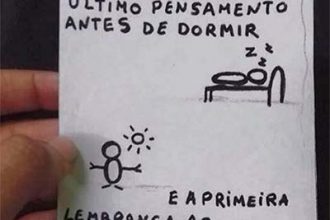 ÚLTIMO PENSAMENTO
ANTES DE DORMIR
z z z
E A PRIMEIRA
LEMBRANÇA AO